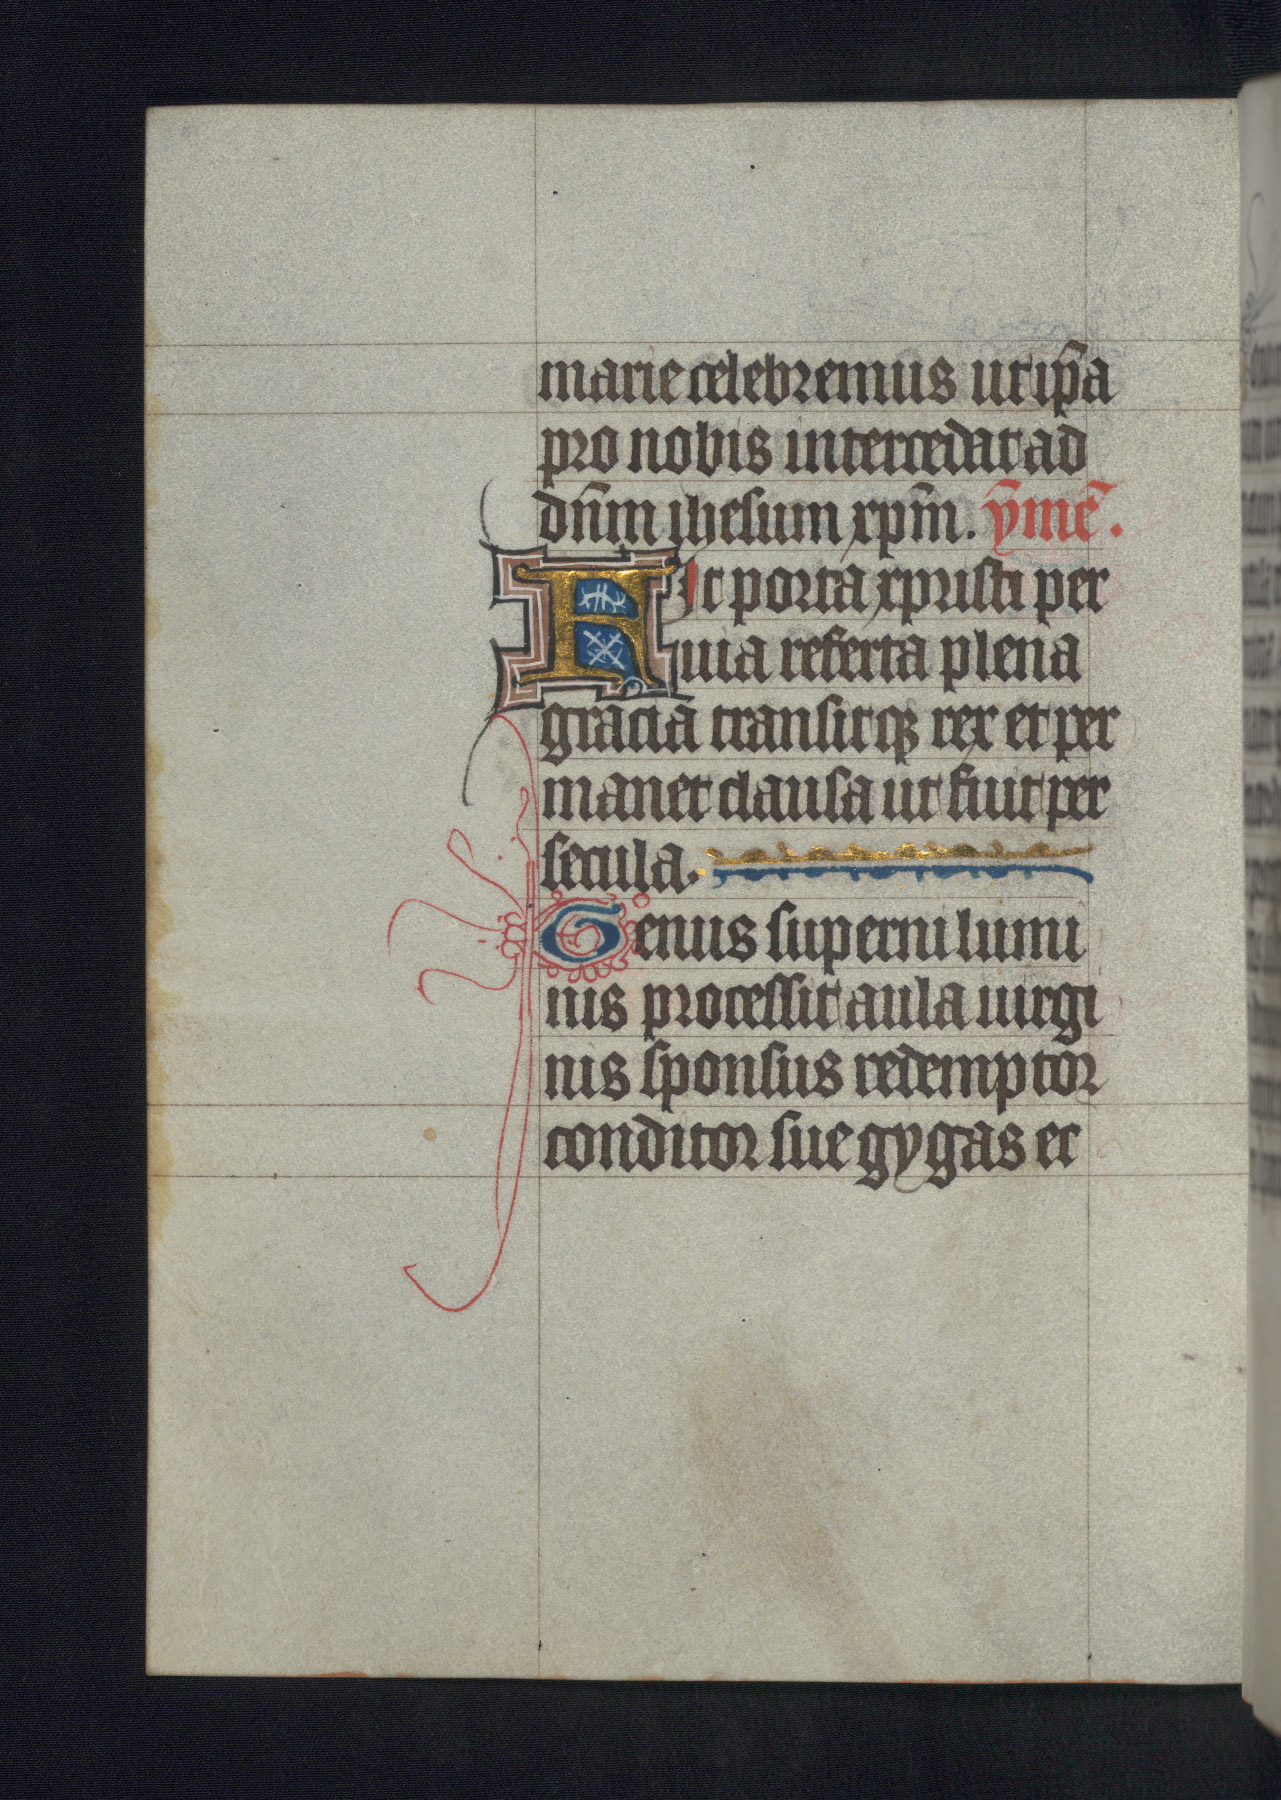 marie celebremus ut ip̄a
pro nobis intercedat ad
dn̄m ihesum xp̄m. ȳmē.
Fit porta xpristi per
uia referta plena
gracia transitqꝫ rex et per
manet clausa ut fuit per
secula.
Genus superni lumi
nis processit aula uirgi
nis sponsus redemptor
conditor sue gygas ec